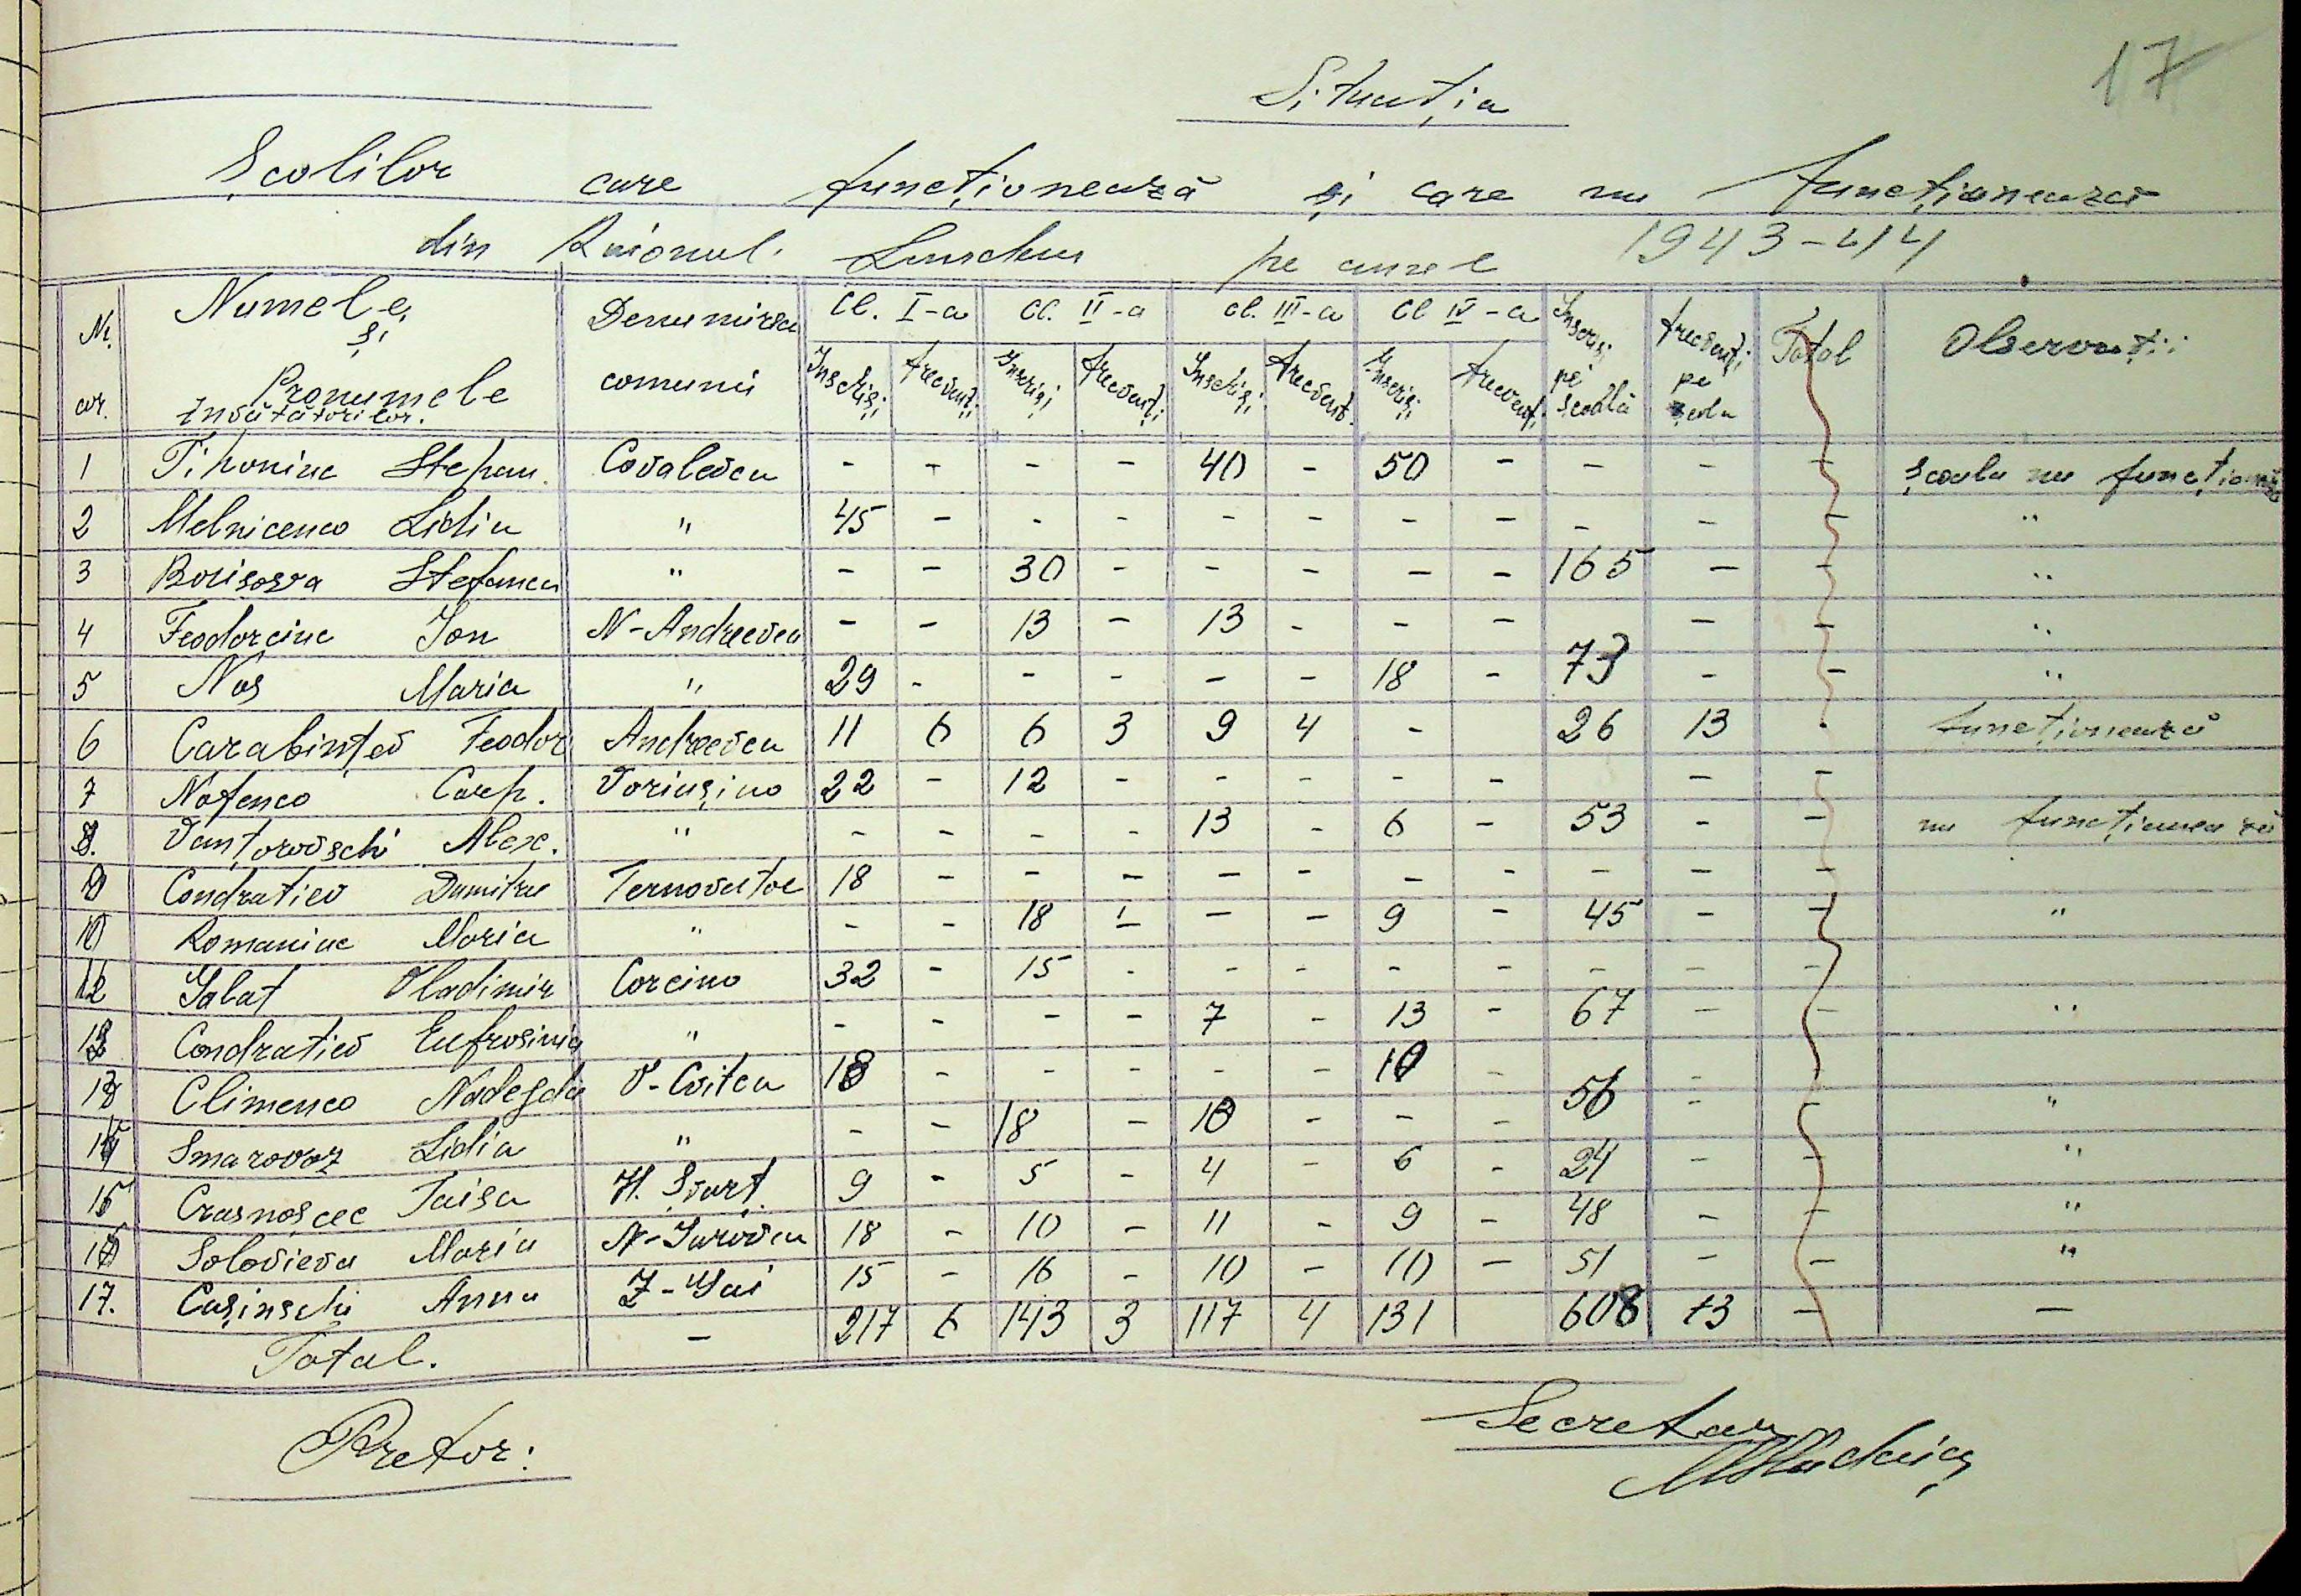 17
Situația
Școlilor care funcționează și care nu funcționează
din Raionul pe anul 1943-44
Nr. cor. Numele și Pronumele Învățătorilor. Denumirea comunii Cl. I-a Cl. II-a Cl. III-a Cl IV-a Inscriși pe școală frecvenți pe școla Total Observații
Inschiși frecvenți Inscriși frecvenți Inschiși frecvent. Inscriși frecvenți
1 Tihoniuc Stepan. Covalevca - - - - 40 - 50 - - - - Școala nu funcționează
2 Melnicenco Lidia " 45 - - - - - - - - - - "
3 Borisova Stefanea " - - 30 - - - - - 165 - - "
4 Feodorciuc Ion N-Andreevca - - 13 - 13 - - - - - "
5 Nos Maria " 29 - - - - - 18 - 73 - - "
6 Carabințev Feodor Andreevca 11 6 6 3 9 4 - 26 13 - funcționează
7 Nofenco Carp. Voriușino 22 - 12 - - - - - - -
8. Vanțorovschi Alex. " - - - - 13 - 6 - 53 - - nu funcționează
9 Condratiev Dumitru Ternovatoe 18 - - - - - - - - - -
10 Romaniuc Maria " - - 18 - - - 9 - 45 - - "
11 Galat Vladimir Corcino 32 - 15 - - - - - - - -
12 Condratiev Eufrosinia " - - - - 7 - 13 - 67 - - "
13 Climenco Nadejda V-Cvitca 18 - - - - - 10 - 56 - - "
14 Smarovoz Lidia " - - 18 - 10 - - - - -
15 Crasnoșcec Taisa H. Svarț. 9 - 5 - 4 - 6 - 24 - - "
16 Solovieva Maria N-Iurovca 18 - 10 - 11 - 9 - 48 - - "
17. Cușinschi Anna Z-Gai 15 - 16 - 10 - 10 - 51 - - "
Total. - 217 6 143 3 117 4 131 608 13 - -
Pretor: Secretar